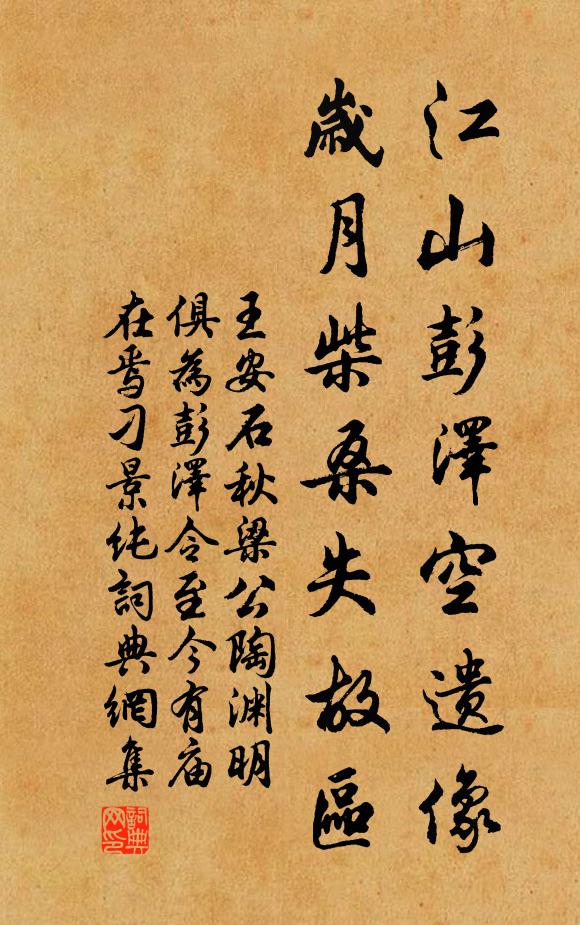 江山彭澤空遺像
歲月柴桑失故區
王安石秋梁公陶渊明
俱為彭澤令至今有庙
在焉刁景纯詞典網集
詞典网印